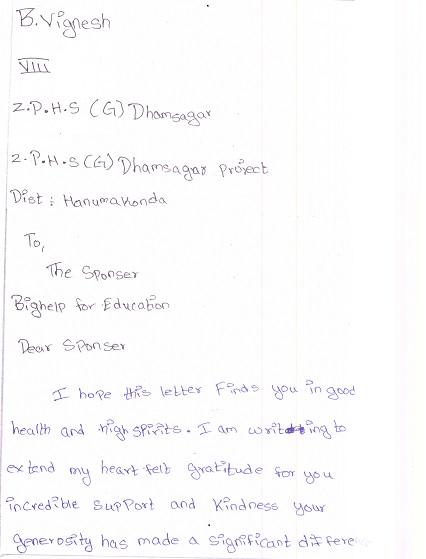 B. Vignesh
VIII
Z.P.H.S (G) Dhamsagar
Z.P.H.S (G) Dhamsagar Project
Dist : Hanumakonda
To,
The Sponser
Bighelp for Education
Dear Sponser
I hope this letter Finds you in good
health and high spirits. I am writing to
extend my heart felt gratitude for you
incredible support and kindness your
generosity has made a significant differe